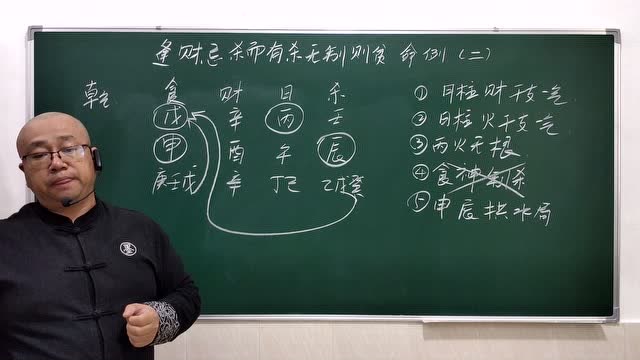 逢财忌杀而有杀无制则贫 命例(二)
乾 食 财 日 杀
戊 辛 丙 壬
申 酉 午 辰
庚壬戊 辛 丁己 乙戊癸
① 月柱财干支一气
② 日柱火干支一气
③ 丙火无根
④ 食神制杀
⑤ 申辰拱水局
墨